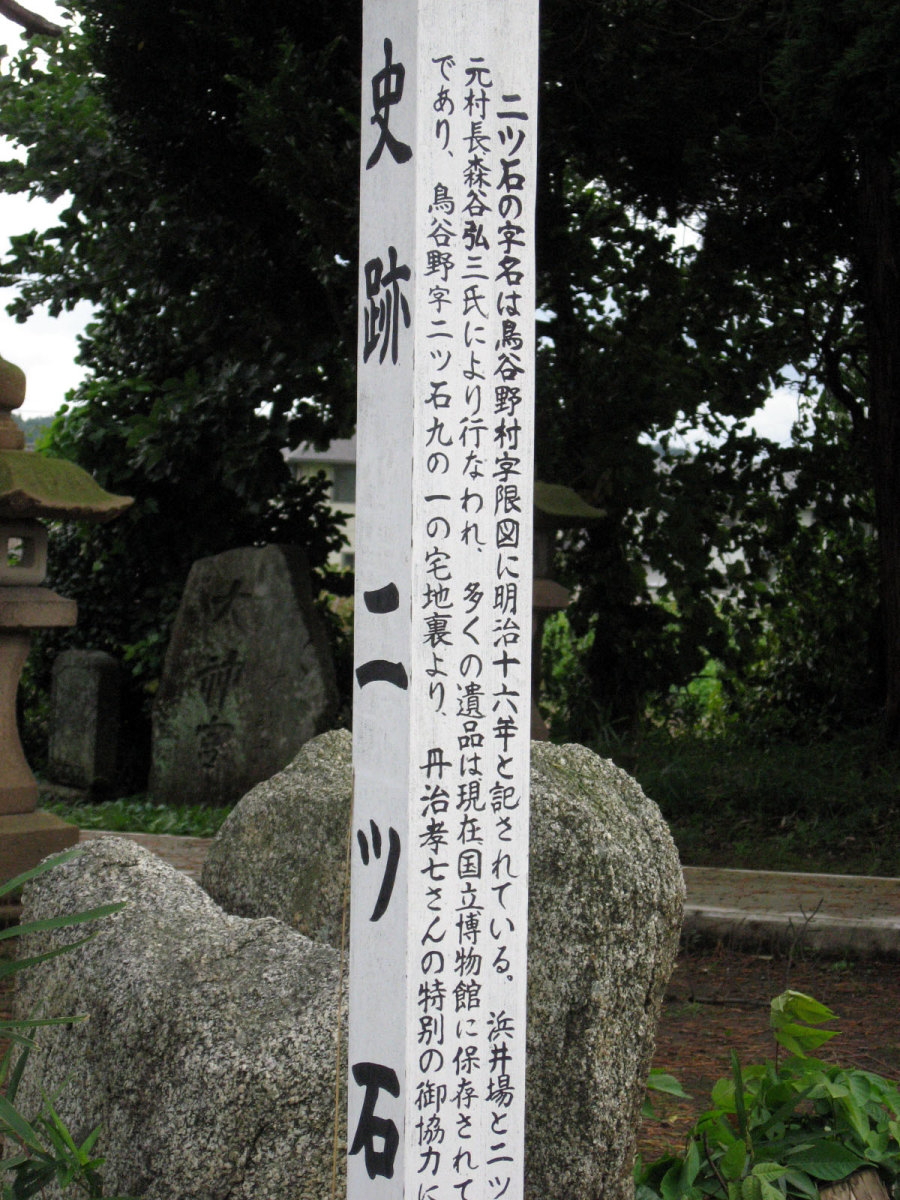 史跡 二ツ石
二ツ石の字名は鳥谷野村字限図に明治十六年と記されている。浜井場と二ツ
元村長森谷弘三氏により行なわれ、多くの遺品は現在国立博物館に保存されて
であり、鳥谷野字二ツ石九の一の宅地裏より、丹治孝七さんの特別の御協力に